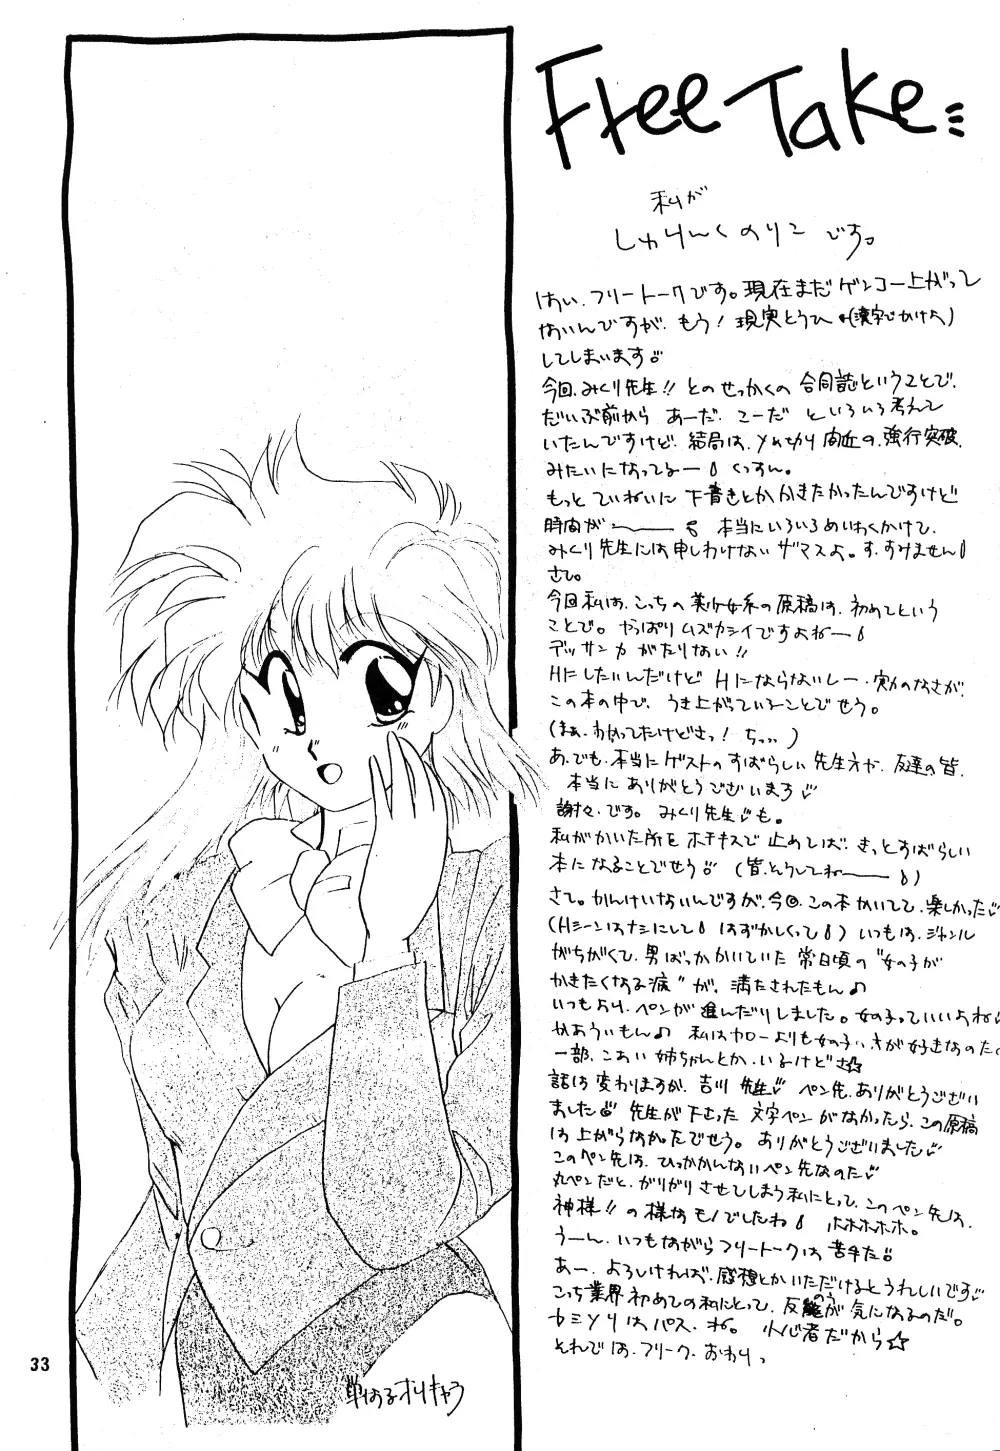 Free Take
私が
しゅりんくのりこ です。
はい、フリートークです。現在まだゲンコー上がって
ないんですが、もう！現実とうひ (漢字でかけよ)
してしまいます
今回、みくり先生!! とのせっかくの 合同誌ということで、
だいぶ前から あーだ、こーだ といろいろ考えて
いたんですけど、結局は、〆め切り間近の、強行突破、
みたいになってるー くっすん。
もっと ていねいに 下書きとか かきたかったんですけど
時間がー 本当にいろいろめいわくかけて、
みくり先生には申しわけないザマスよ。す、すみません
さて。
今回私は、こっちの美少女系の原稿は、初めてという
ことで。やっぱりムズカシイですよねー
デッサン力がたりない!!
Hにしたいんだけど Hにならないしー、実力のなさが、
この本の中で、うき上がっていることでせう。
(まぁ、わかってたけどさっ！ ちっ、、)
あ、でも、本当にゲストのすばらしい先生方や、友達の皆、
本当にありがとうございます
謝々、です。みくり先生も。
私がかいた所をホチキスで止めてしば、きっとすばらしい
本になることでせう (皆、そうしてねー)
さて。かんけいないんですが、今回、この本かいてて、楽しかった
(Hシーンはナシにして はずかしくって) いつもは、ジャンル
がちがくて、男ばっかかいていた 常日頃の "女の子が
かきたくなる病" が、満たされたもん♪
いつもより、ペンが進んだりしました。女の子っていいよね
かあういもん♪ 私はヤローよりも女の子の方が好きなのだ
一部、こあい姉ちゃんとか、いるけどさ
話は変わりますが、吉川先生 ペン先、ありがとうござい
ました 先生が下さった 文字ペンがなかったら、この原稿
は上がらなかったでせう。ありがとうございました
このペン先は、ひっかかんないペン先なのだ
丸ペンだと、がりがりさせてしまう私にとって、このペン先は、
神様!! の様なモノでしたね ホホホホホ。
うーん、いつもながらフリートークは苦手だ
あー、よろしければ、感想とかいただけるとうれしいです
こっち業界初めての私にとって、反応が気になるのだ。
カミソリはパス、ね。小心者だから☆
それでは、フリーク、おわりっ
単なるオリキャラ
33